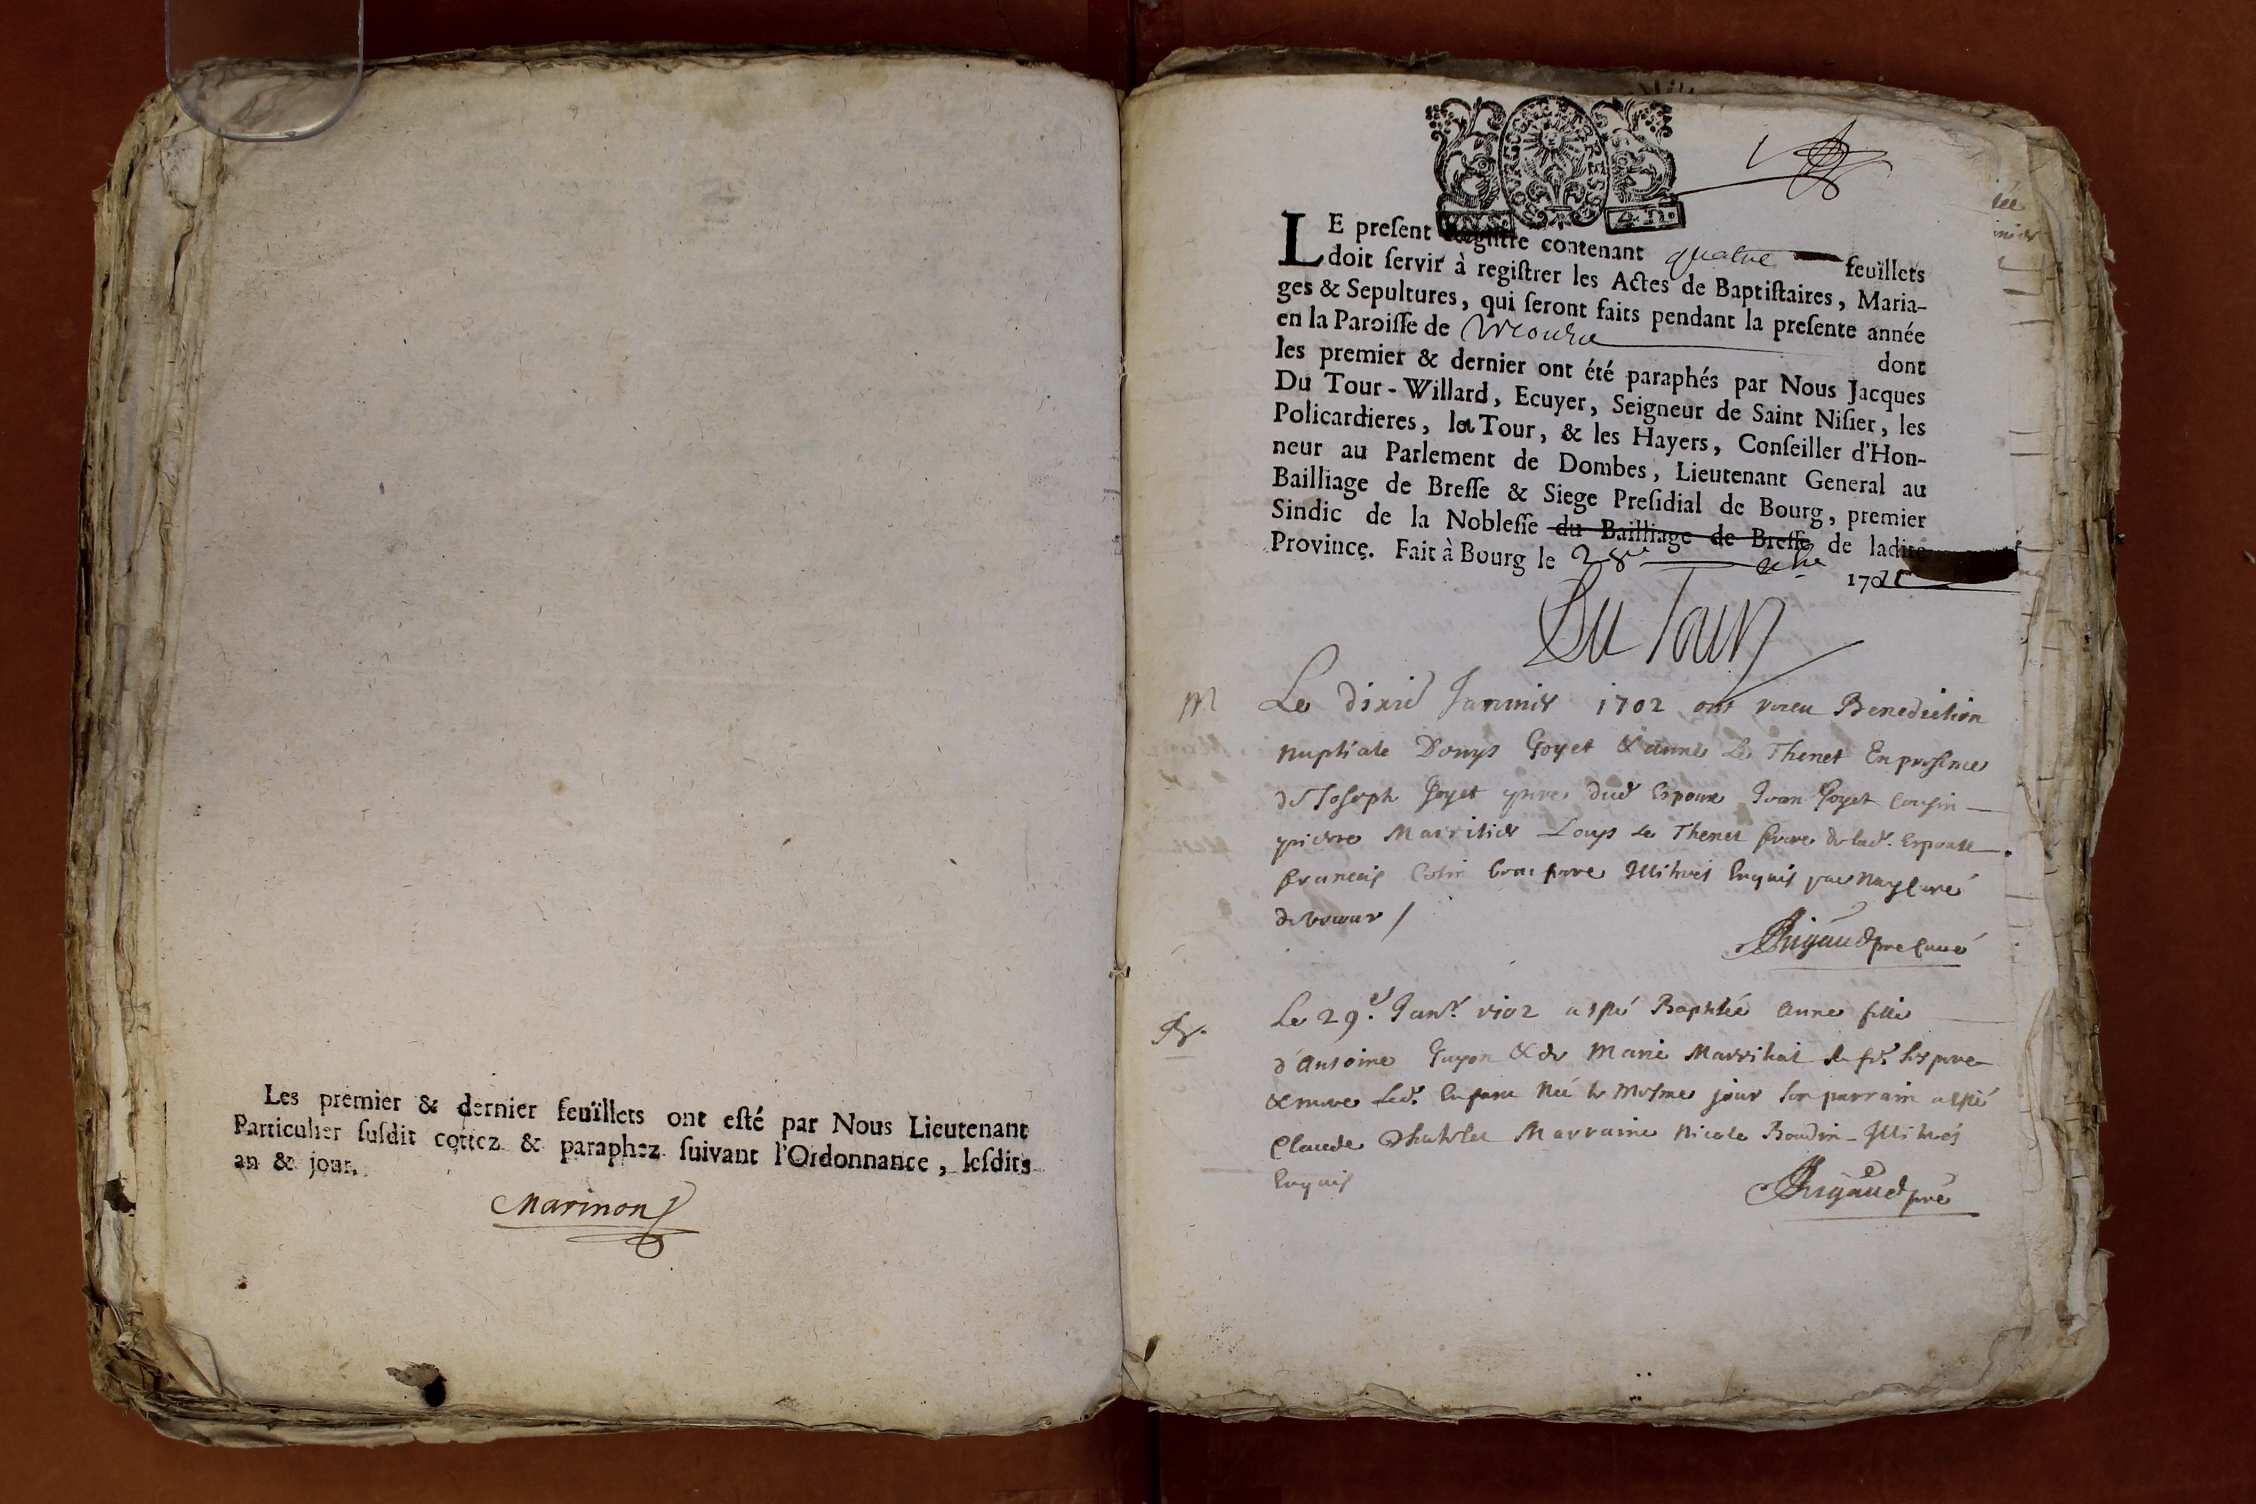 Les premier & dernier feuïllets ont esté par Nous Lieutenant
Particulier susdit cottez & paraphez suivant l'Ordonnance, lesdits
an & jour.
Marinon
LE present Registre contenant quatre feuïllets
doit servir à registrer les Actes de Baptistaires, Maria-
ges & Sepultures, qui seront faits pendant la presente année
en la Paroisse de dont
les premier & dernier ont été paraphés par Nous Jacques
Du Tour-Willard, Ecuyer, Seigneur de Saint Nisier, les
Policardieres, la Tour, & les Hayers, Conseiller d'Hon-
neur au Parlement de Dombes, Lieutenant General au
Bailliage de Bresse & Siege Presidial de Bourg, premier
Sindic de la Noblesse du Bailliage de Bresse de ladite
Province. Fait à Bourg le 28e 1701
Du Tour
M
Le dixie Janvier 1702 ont receu Benediction
nuptiale Denys Goyet & anne Le Thenet En presence
de Joseph Goyet Espoux Jean Goyet Cousin
pierre Loup Le Thenet frere de lad. Espouse
francois Illitres Enquis par moy Curé
Rigaud pre Curé
B.
Le 29e Janr. 1702 a esté Baptisée anne fille
d'Antoine Guyon & de Marie
& mere led. Enfant Né le mesme jour son parrain a esté
Claude Marraine Nicole Boudin Illitres
Enquis
Rigaud pre